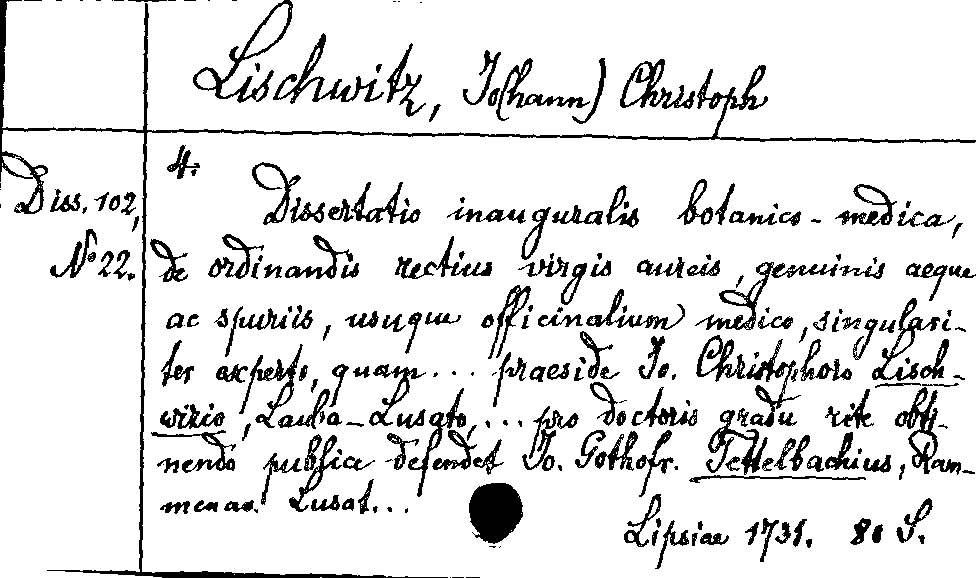 Lischwitz, Jo(hann) Christoph
4.
Diss. 102,
No 22.
Dissertatio inauguralis botanico-medica,
de ordinandis rectius virgis aureis, genuinis aeque
ac spuriis, usuque officinalium medico, singulari-
ter experto, quam... praeside Jo. Christophoro Lisch-
wizio, Lauba-Lusato,... pro doctoris gradu rite obti-
nendo publice defendet Jo. Gothofr. Tettelbachius, Ram-
menav. Lusat...
Lipsiae 1731. 80 S.